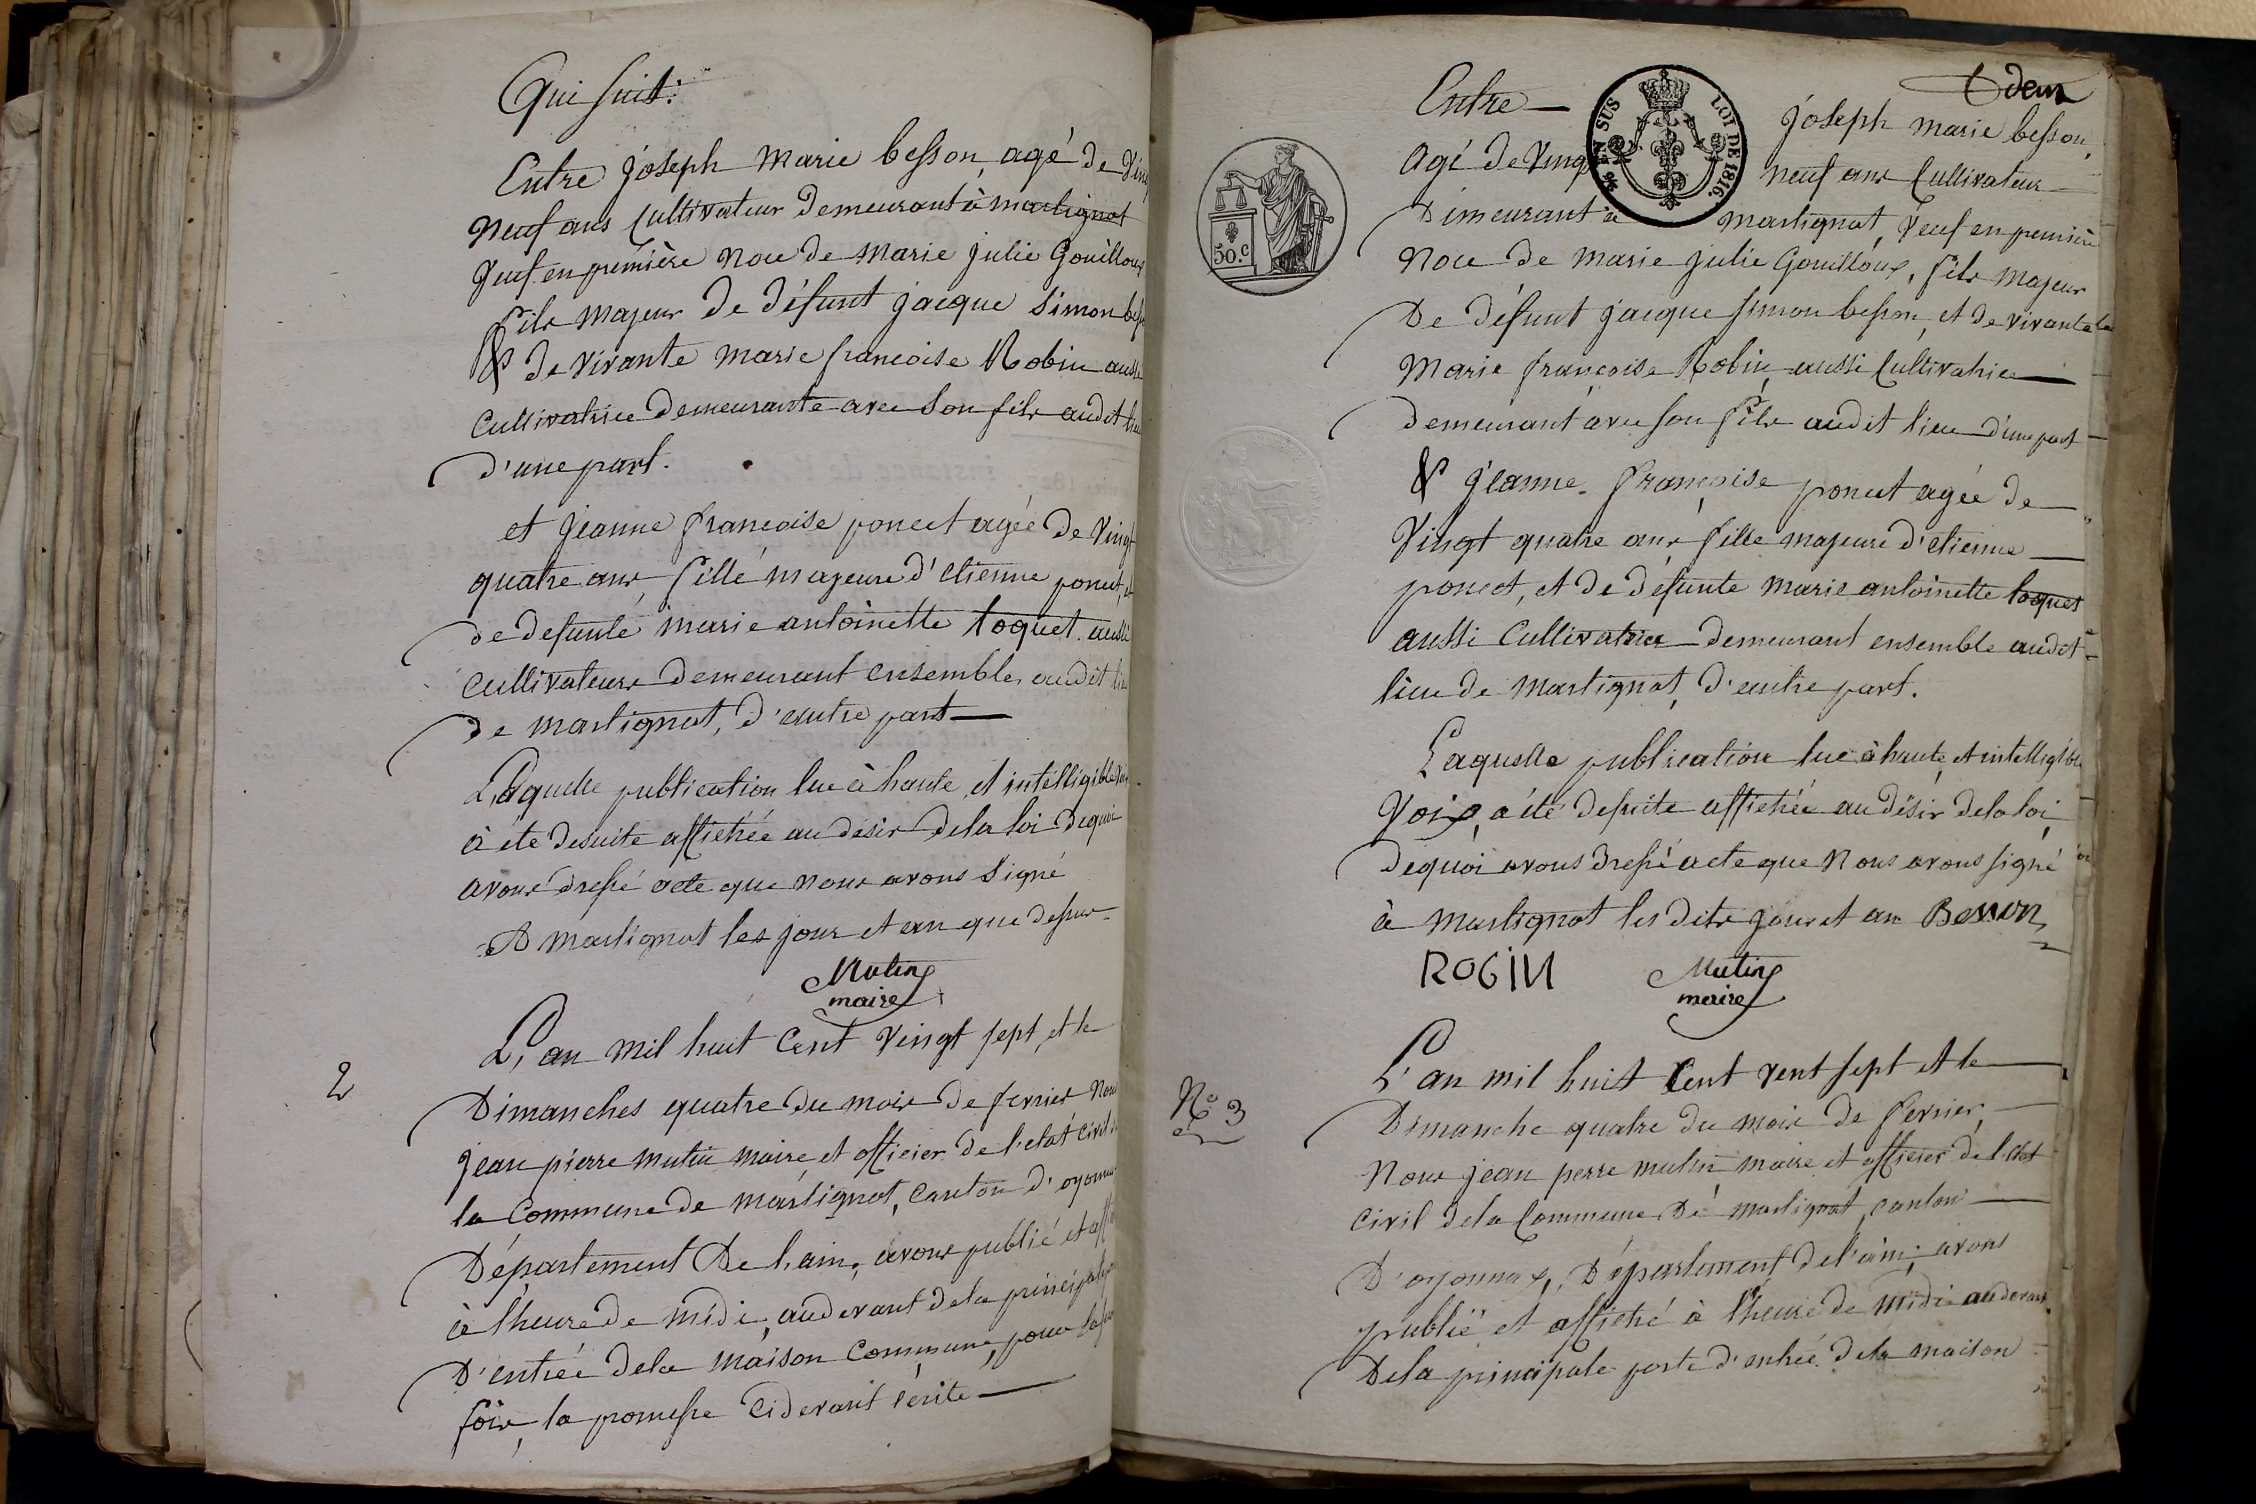 Qui suit:
Entre joseph marie besson, agé de Vingt
neuf ans Cultivateur Demeurant à martignat
Veuf en première Noce de marie julie Gouilloux
fils majeur De défunt jacque Simon
& de vivante marie francoise Robin aussi
cultivatrice Demeurante avec Son fils audit lieu
d'une part.
et jeanne francoise poncet agée De Vingt
quatre ans, fille majeure d'etienne poncet, et
de defunte marie antoinette toquet aussi
cultivateurs Demeurant ensemble, audit lieu
de martignat, d'autre part —
Laquelle publication lue à haute, et intelligible
à été desuite affichée au désir dela loi dequoi
avons dressé acte que nous avons Signé
A martignat les jour et an que dessus
Mutin
maire
2
L'an mil huit Cent vingt sept, et le
Dimanches quatre du mois de fevrier Nous
jean pierre mutin maire et officier de l'etat civil
la Commune de martignat, canton d'
Département De l'ain, avons publié et
à l'heure de midi, audevant dela principale
D'entrée dela maison Commune, pour
fois, la promesse Cidevant écrite —
deux
Entre — joseph marie besson,
EN SUS LOI DE 1816.
50.C
agé de Vingt neuf ans Cultivateur
Demeurant à martignat, Veuf en première
Noce de marie julie Gouilloux, fils majeur
De défunt jacque Simon besson, et de vivante
Marie françoise Robin, aussi Cultivatrice —
demeurant avec son fils audit lieu d'une part
& jeanne françoise poncet agée de —
Vingt quatre ans fille majeure d'etienne —
poncet, et de défunte marie antoinette toquet
aussi Cultivatrice Demeurant ensemble audit
lieu de martignat, d'autre part.
Laquelle publication lue à haute, et intelligible
Voix, a été desuite affichée au désir dela loi,
dequoi avons dressé acte que Nous avons signé
à martignat les dits jour et an Besson
ROBIN
Mutin
maire
N° 3
L'an mil huit Cent vent sept et le —
Dimanche quatre du mois de fevrier, —
Nous jean perre mutin maire et officier de l'etat
civil dela Commune De martignat canton —
D'oyonnax, Département de l'ain, avons
publié et affiché à l'heure de midi audevant
Dela principale porte d'entrée dela maison